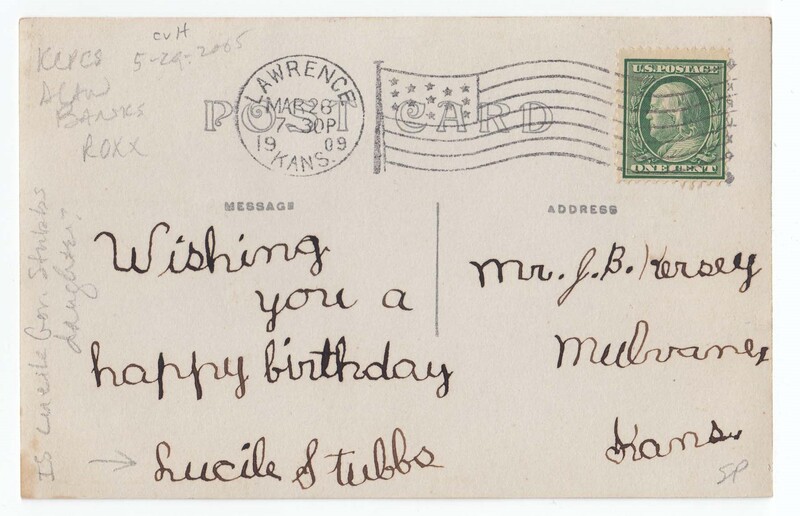 CVH
5-29-2005
KCPCS
ALAN
BANKS
ROXX
LAWRENCE
MAR 28
7-30P
1909
KANS.
POST CARD
U.S. POSTAGE
ONE CENT
MESSAGE
ADDRESS
Wishing
you a
happy birthday
Lucile Stubbs
Mr. J. B. Kersey
Mulvane,
Kans.
SP
Is Lucile Gov. Stubbs
daughter?